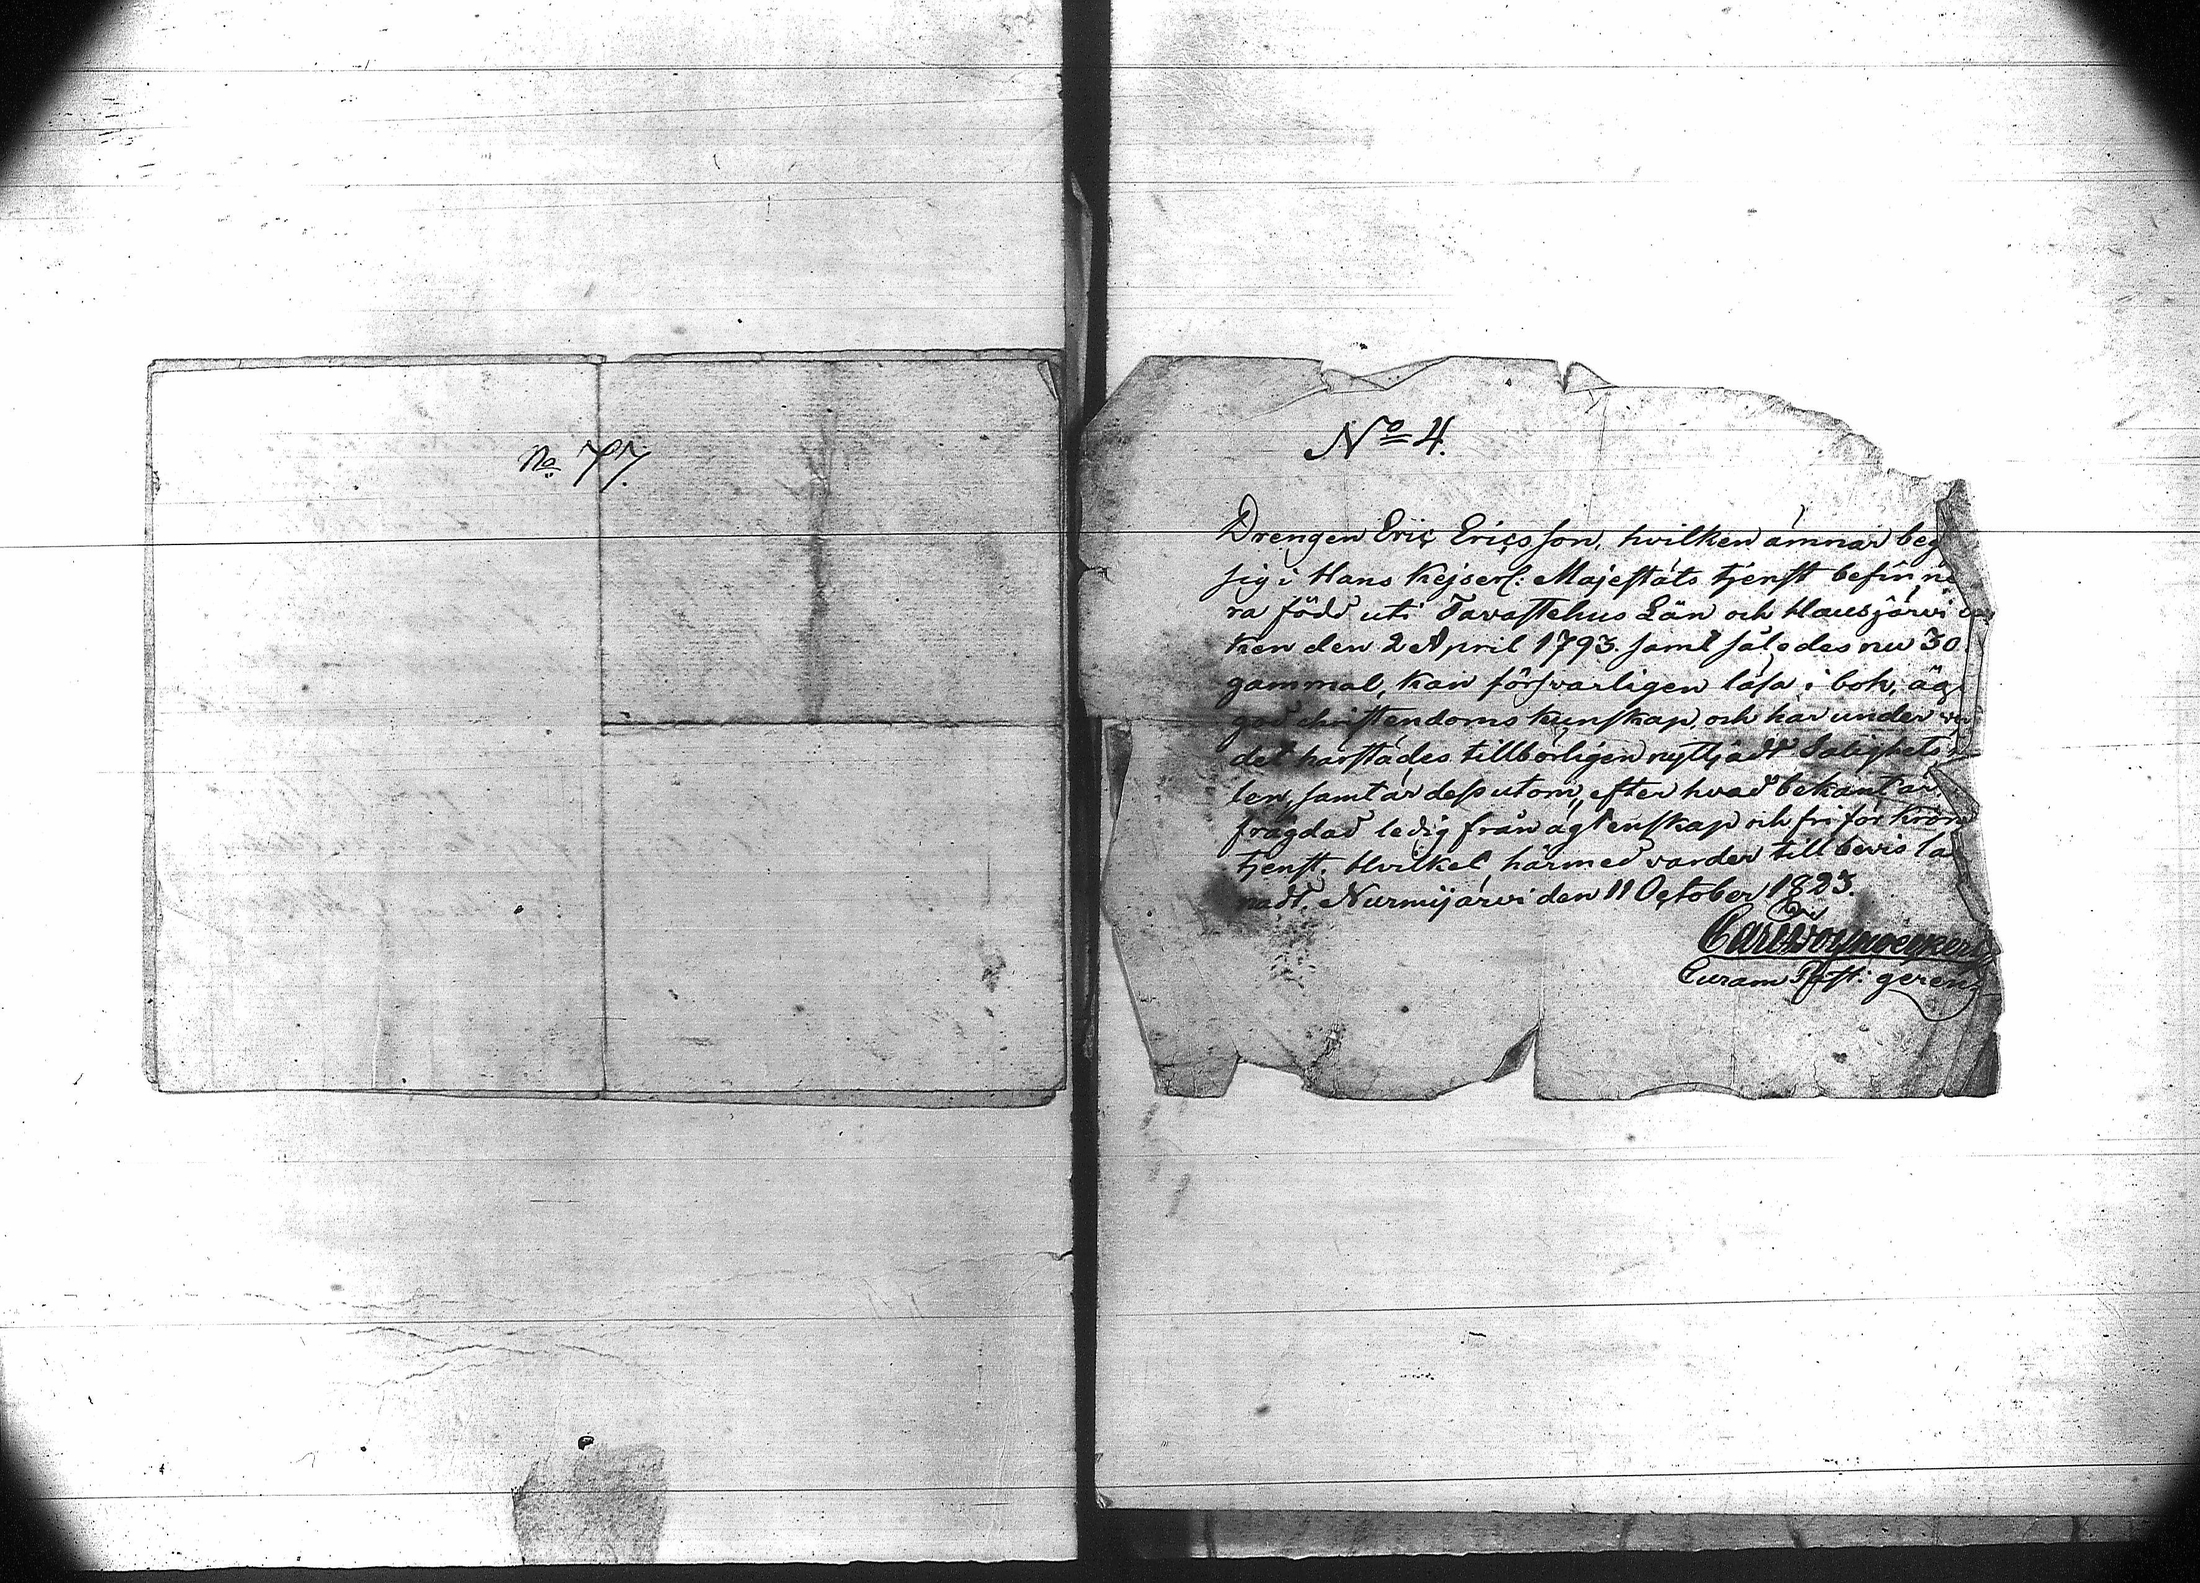 No 77.
No 4.
Drengen Eric Ericsson, hvilken ämnar beg
sig i Hans Kejserl: Majestäts tjenst befinne
ra född uti Tavastehus Län och Hausjärvi
ken den 2 April 1793. samt således nu 30
gammal, kan försvarligen läsa i bok, äg
god christendoms kunskap, och har under
det härstädes tillbörligen nyttjadt Salighets
len, samt är dessutom, efter hvad bekant är,
frägdad ledig från ägtenskap och fri för Kron
tjenst. Hvilket härmed varder till bevis la
nadt. Nurmijärvi den 11 October 1823.
Curam Past: gerens